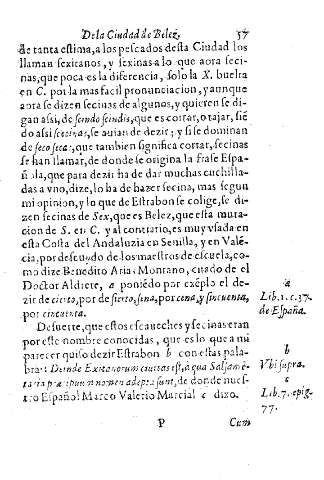 De la Ciudad de Belez. 57
de tanta estima, a los pescados desta Ciudad los
llaman sexitanos, y sexinas a lo que aora seci-
nas, que poca es la diferencia, solo la X. buelta
en C. por la mas facil pronunciacion, y aunque
aora se dizen secinas de algunos, y quieren se di-
gan assi, de scindo scindis, que es cortar, o tajar, sié
do assi se auian de dezir; y si se dominan
de seco secas, que tambien significa cortar, secinas
se han llamar, de donde se origina la frase Espa-
ñola, que para dezir ha de dar muchas cuchilla-
das a vno, dize, lo ha de hazer secina, mas segun
mi opinion, y lo que de Estrabon se colige, se di-
zen secinas de Sex, que es Belez, que esta muta-
cion de S. en C. y al contrario, es muy vsada en
esta Costa del Andaluzia en Seuilla, y en Valé-
cia, por descuydo de los maestros de escuela, co-
mo dize Benedito Aria, Montano, citado de el
Doctor Aldrete, a poniédo por exéplo el de-
zir de cierto, por de sierto, sena, por cena, y sincuenta,
por cincuenta.
a
Lib. 1. c. 37.
de España.
Desuerte, que estos escaueches y secinas eran
por este nombre conocidas, que es lo que a mi
parecer quiso dezir Estrabon b con estas pala-
bras: Deinde Exitanorum ciuitas est, a qua Salsame-
taria nomen adepta sunt, de donde nues-
tro Español Marco Valerio Marcial c dixo.
b
Vbi supra.
c
Lib. 7. epig.
77.
P Cum